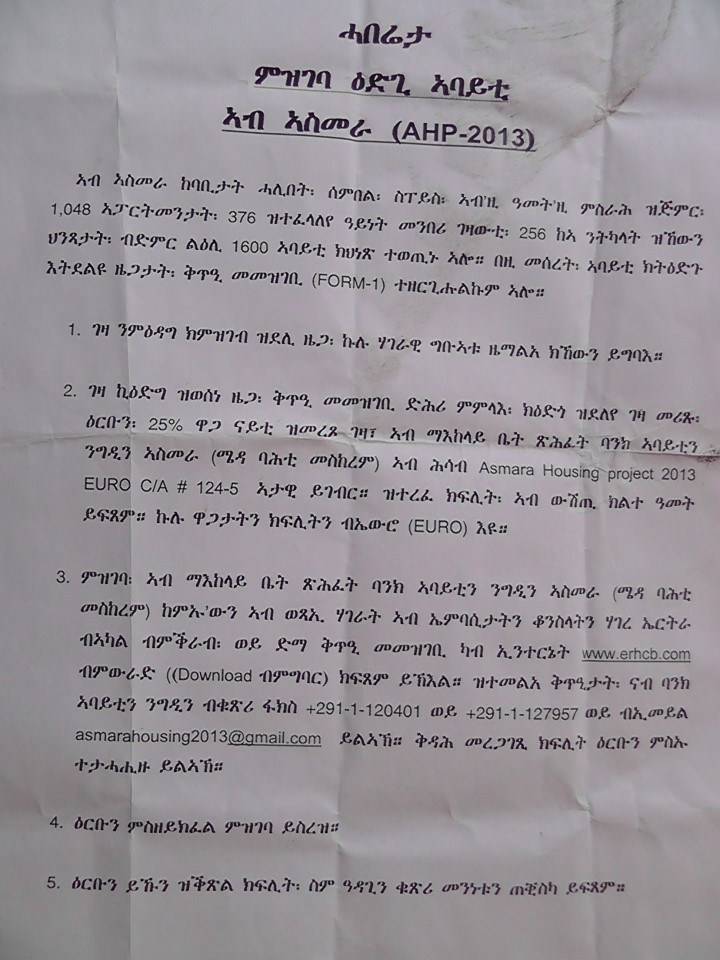 ሓበሬታ
ምዝገባ ዕድጊ ኣባይቲ
ኣብ ኣስመራ (AHP-2013)
ኣብ ኣስመራ ከባቢታት ሓሊበት፡ ሰምበል፡ ስፓይስ፡ ኣብ'ዚ ዓመት'ዚ ምስራሕ ዝጅምር፡
1,048 ኣፓርትመንታት፡ 376 ዝተፈላለየ ዓይነት መንበሪ ገዛውቲ፡ 256 ከኣ ንትካላት ዝኸውን
ህንጻታት፡ ብድምር ልዕሊ 1600 ኣባይቲ ክህነጽ ተወጢኑ ኣሎ። በዚ መሰረት፡ ኣባይቲ ክትዕድጉ
እትደልዩ ዜጋታት፡ ቅጥዒ መመዝገቢ (FORM-1) ተዘርጊሑልኩም ኣሎ።
1. ገዛ ንምዕዳግ ክምዝገብ ዝደሊ ዜጋ፡ ኩሉ ሃገራዊ ግቡኣቱ ዜማልአ ክኸውን ይግባእ።
2. ገዛ ኪዕድግ ዝወሰነ ዜጋ፡ ቅጥዒ መመዝገቢ ድሕሪ ምምላእ፡ ክዕድጎ ዝደለየ ገዛ መሪጹ፡
ዕርቡን፡ 25% ዋጋ ናይቲ ዝመረጾ ገዛ፣ ኣብ ማእከላይ ቤት ጽሕፈት ባንክ ኣባይቲን
ንግዲን ኣስመራ (ሜዳ ባሕቲ መስከረም) ኣብ ሕሳብ Asmara Housing project 2013
EURO C/A # 124-5 ኣታዊ ይገብር። ዝተረፈ ክፍሊት፡ ኣብ ውሽጢ ክልተ ዓመት
ይፍጸም። ኩሉ ዋጋታትን ክፍሊትን ብኤውሮ (EURO) እዩ።
3. ምዝገባ፡ ኣብ ማእከላይ ቤት ጽሕፈት ባንክ ኣባይቲን ንግዲን ኣስመራ (ሜዳ ባሕቲ
መስከረም) ከምኡ'ውን ኣብ ወጻኢ ሃገራት ኣብ ኤምባሲታትን ቆንስላትን ሃገረ ኤርትራ
ብኣካል ብምቕራብ፡ ወይ ድማ ቅጥዒ መመዝገቢ ካብ ኢንተርኔት www.erhcb.com
ብምውራድ ((Download ብምግባር) ክፍጸም ይኽእል። ዝተመልአ ቅጥዒታት፡ ናብ ባንክ
ኣባይቲን ንግዲን ብቁጽሪ ፋክስ +291-1-120401 ወይ +291-1-127957 ወይ ብኢመይል
asmarahousing2013@gmail.com ይልኣኽ። ቅዳሕ መረጋገጺ ክፍሊት ዕርቡን ምስኡ
ተታሓሒዙ ይልኣኽ።
4. ዕርቡን ምስዘይክፈል ምዝገባ ይስረዝ።
5. ዕርቡን ይኹን ዝቕጽል ክፍሊት፡ ስም ዓዳጊን ቁጽሪ መንነቱን ጠቒስካ ይፍጸም።